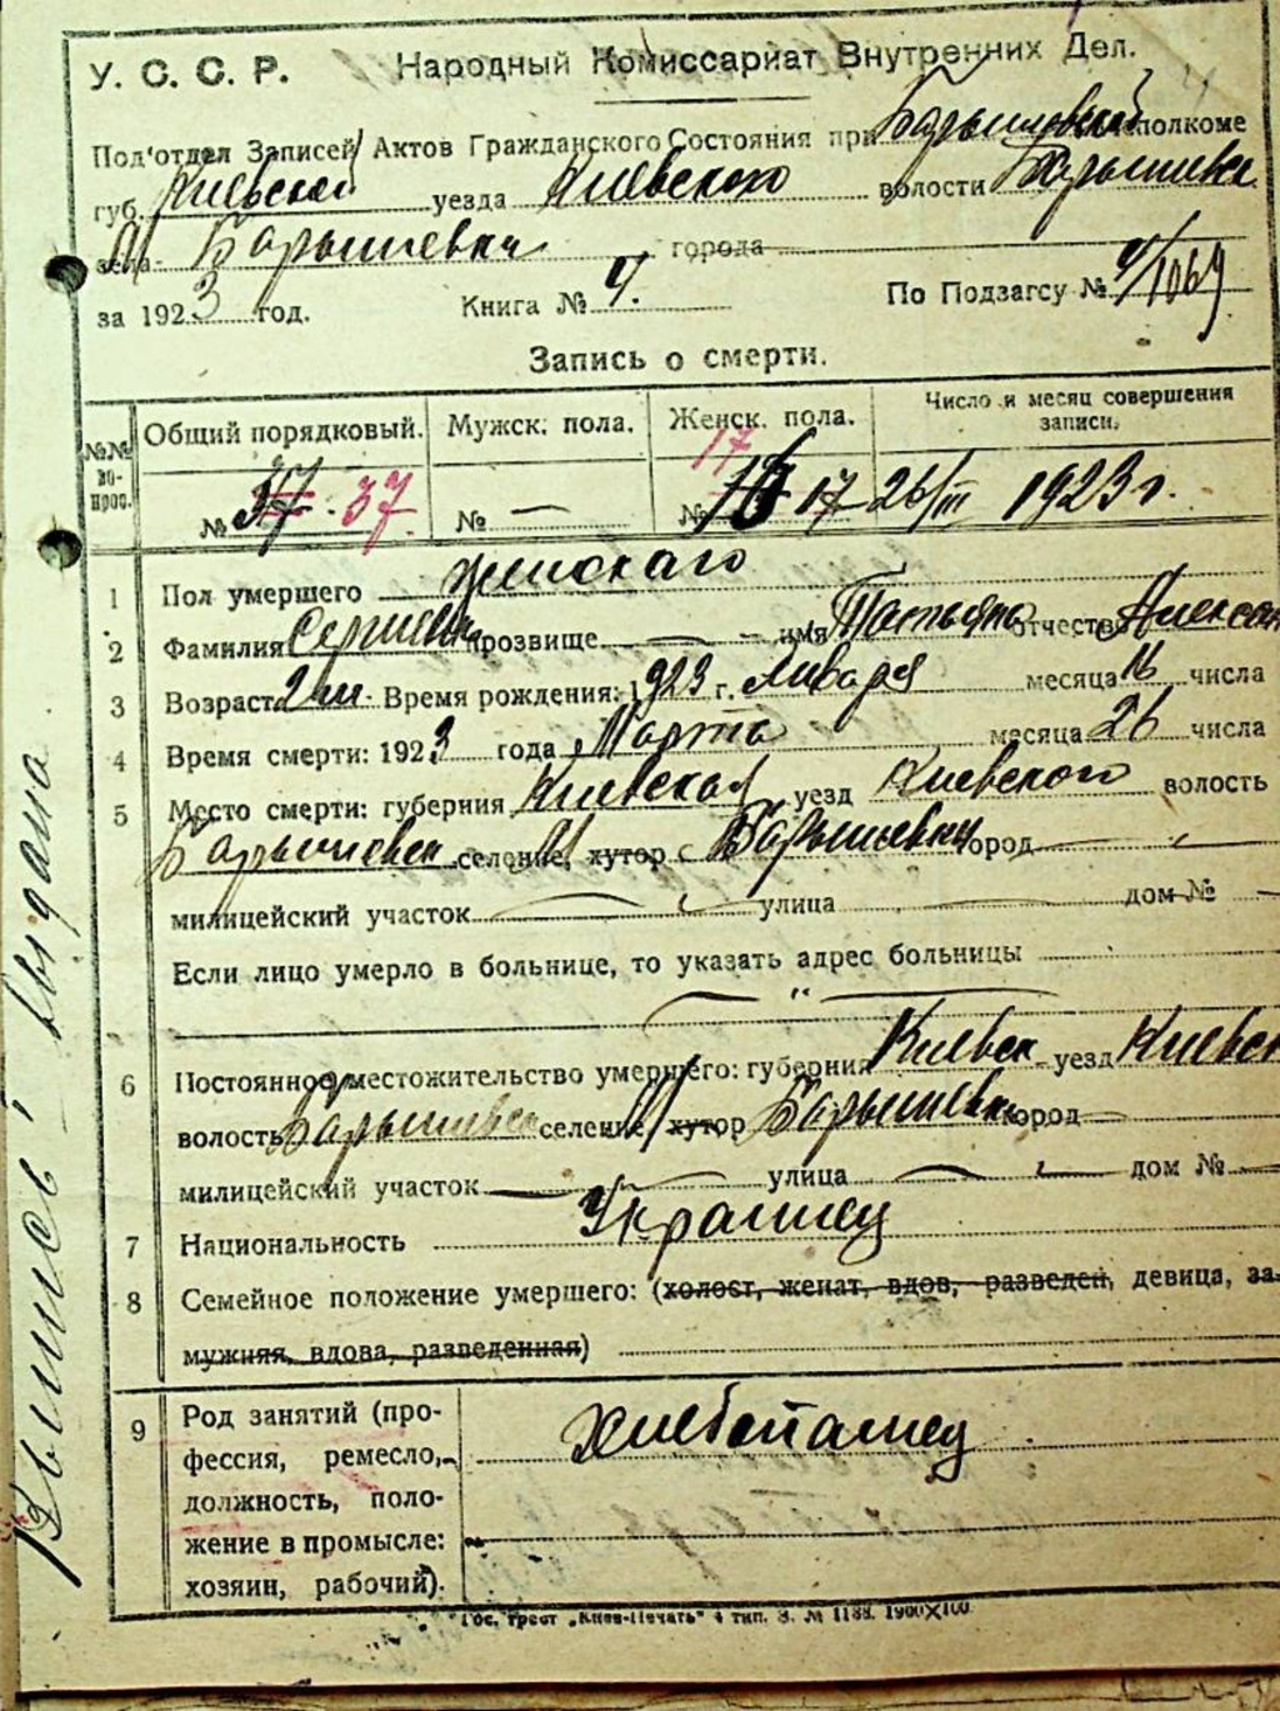 У. С. С. Р. Народный Комиссариат Внутренних Дел.
Под'отдел Записей Актов Гражданского Состояния при Барышевской исполкоме
губ. Киевской уезда Киевского волости Барышевск
села м Барышевки города
за 1923 год. Книга № 4. По Подзагсу № 4/1069
Запись о смерти.
№№ во- прос. Общий порядковый. Мужск. пола. Женск. пола. Число и месяц совершения записи.
17
№ 37 37 № — № 16 17 26/III 1923 г.
1 Пол умершего женскаго
2 Фамилия прозвище — имя Татьяна отчество Алексан
3 Возраст 2 м. Время рождения: 1923 г. Января месяца 16 числа
4 Время смерти: 1923 года Марта месяца 26 числа
5 Место смерти: губерния Киевская уезд Киевского волость
Барышевск селение, м хутор Барышевки город —
милицейский участок — улица — дом № —
Если лицо умерло в больнице, то указать адрес больницы
— " —
6 Постоянное местожительство умершего: губерния Киевск уезд Киевск
волость Барышевск селение м хутор Барышевки город —
милицейский участок — улица — дом № —
7 Национальность Украинец
8 Семейное положение умершего: (холост, женат, вдов, разведен, девица, за-
мужняя, вдова, разведенная)
9 Род занятий (про-
фессия, ремесло,
должность, поло-
жение в промысле:
хозяин, рабочий).
Хлебопашец
Гос. трест „Киев-Печать" 4 тип. З. № 1188. 1900X100
выдана